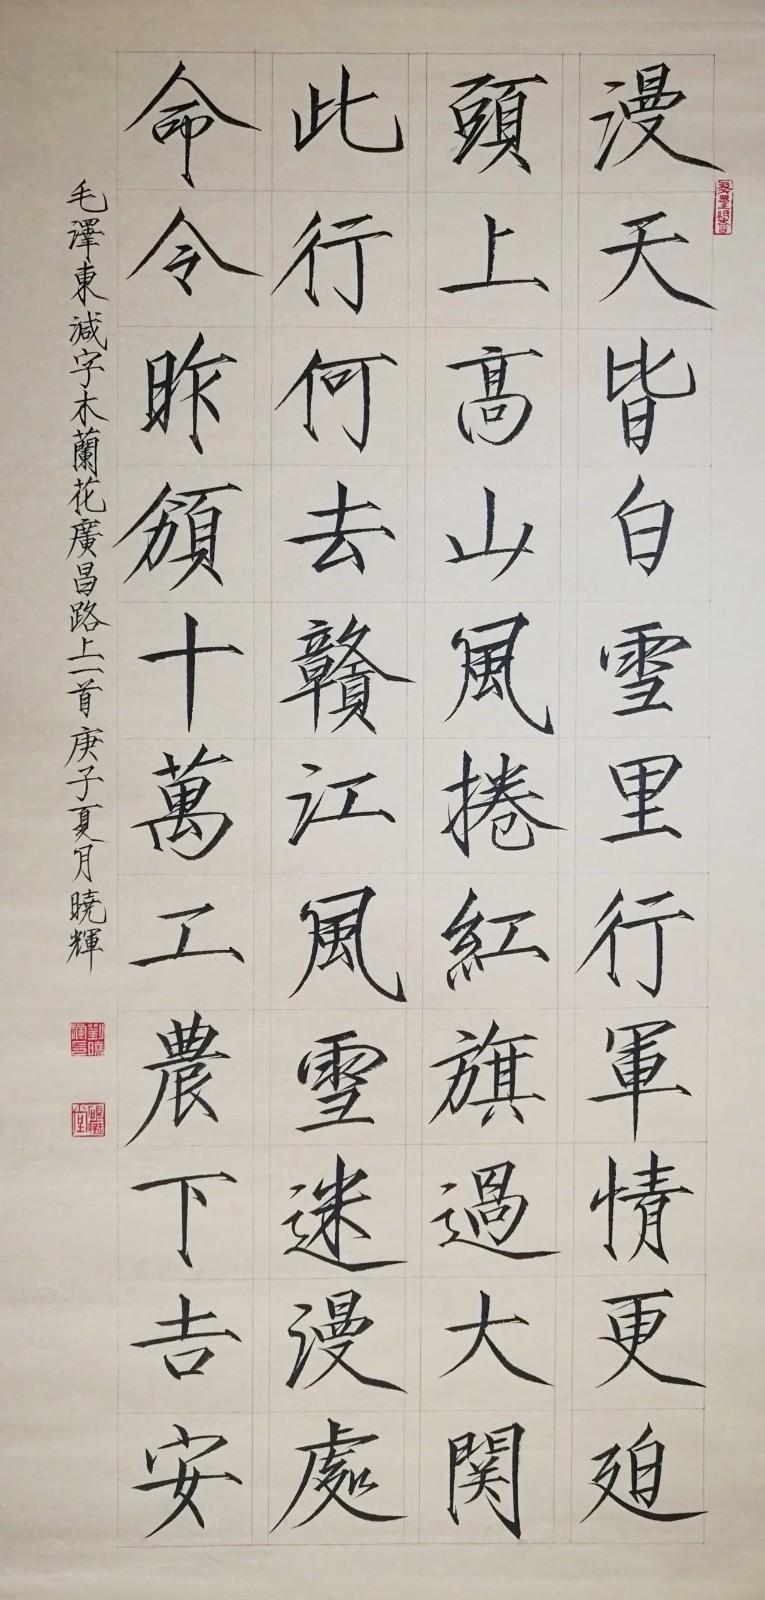 漫天皆白雪里行軍情更廹
頭上高山風捲紅旗過大関
此行何去贛江風雪迷漫處
命令昨頒十萬工農下吉安
毛澤東減字木蘭花廣昌路上一首庚子夏月曉輝